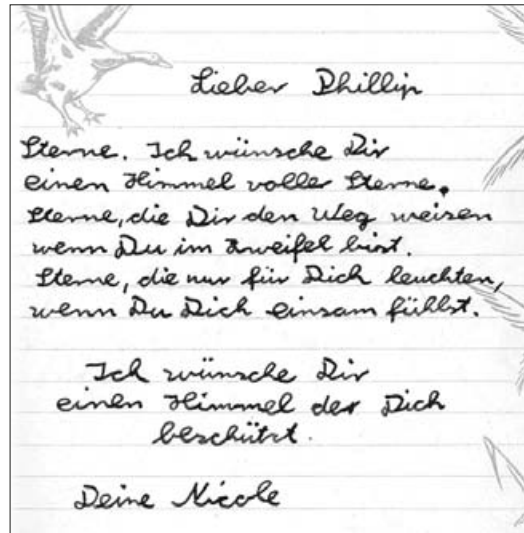 Lieber Phillip
Sterne. Ich wünsche Dir
einen Himmel voller Sterne.
Sterne, die Dir den Weg weisen
wenn Du im Zweifel bist.
Sterne, die nur für Dich leuchten,
wenn Du Dich einsam fühlst.
Ich wünsche Dir
einen Himmel der Dich
beschützt.
Deine Nicole